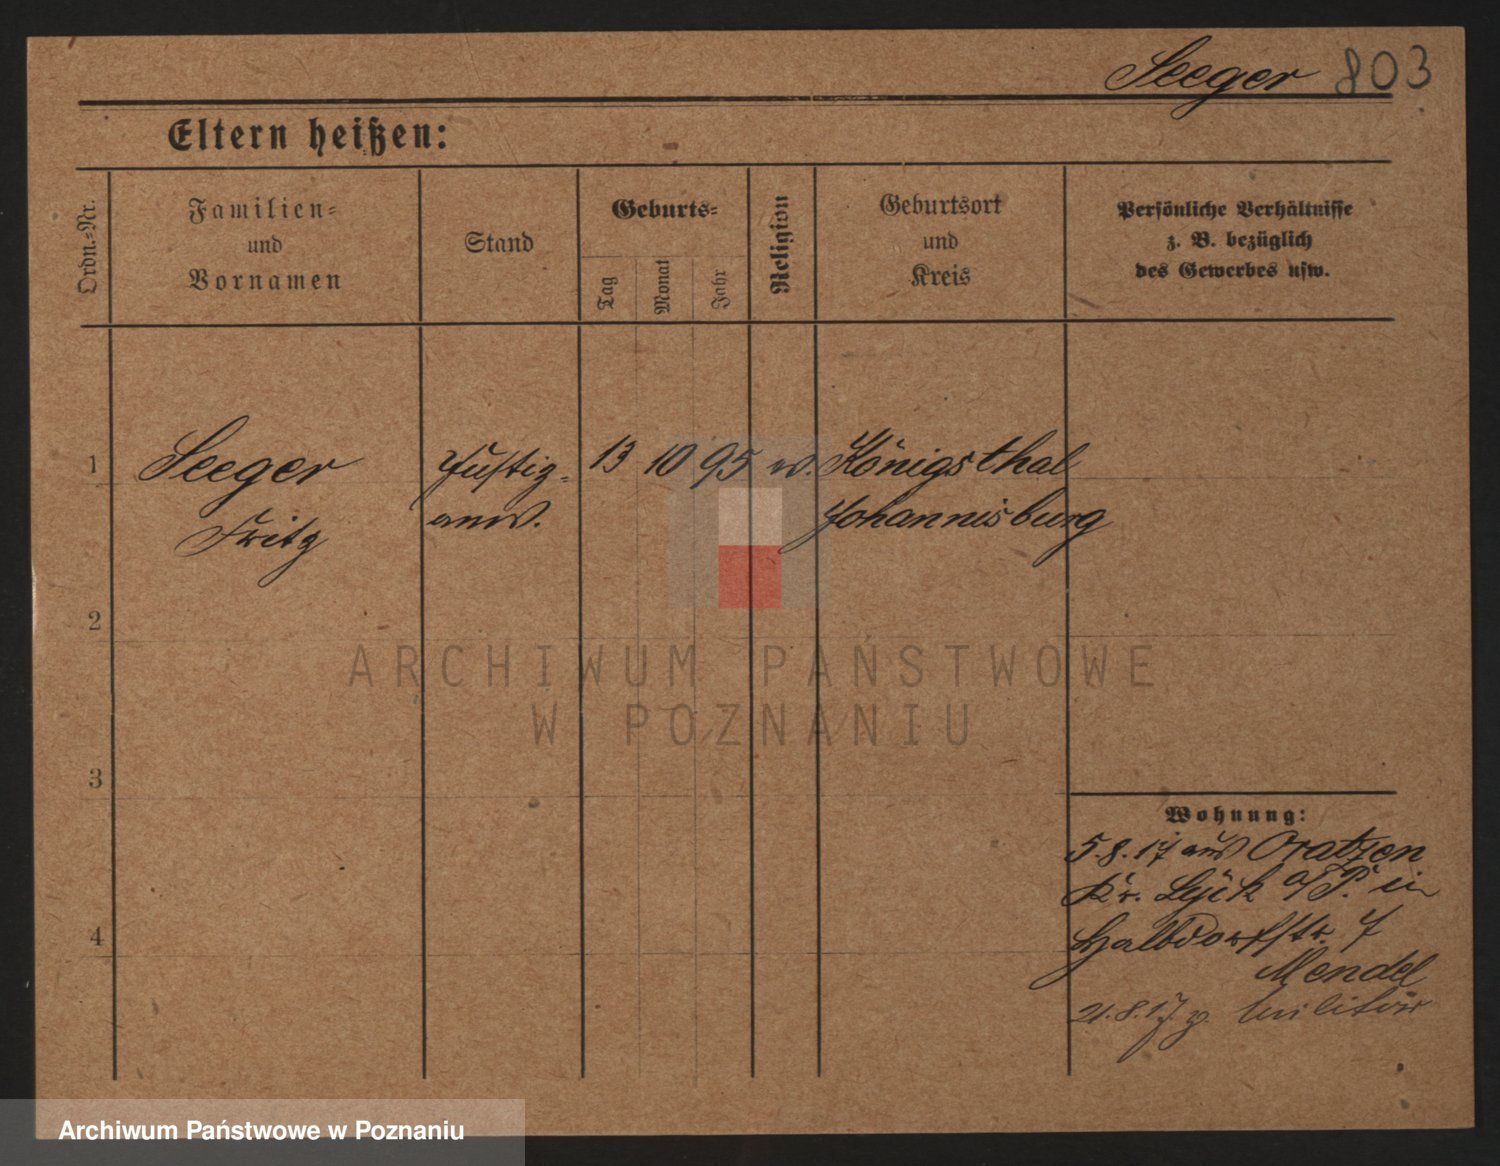 Seeger 803
Eltern heißen:
Ordn.-Nr.
Familien-
und
Vornamen
Stand
Geburts-
Tag
Monat
Jahr
Religion
Geburtsort
und
Kreis
Persönliche Verhältnisse
z. B. bezüglich
des Gewerbes usw.
1 Seeger Justiz- 13 10 95 Königsthal
Fritz anw. Johannisburg
2
3
4
ARCHIWUM PAŃSTWOWE
W POZNANIU
Wohnung:
5.8.17 aus Oratzen
Kr. Lyck O/P. in
Halbdorfstr. 7
Mendel
21.8.17 z. Militär
Archiwum Państwowe w Poznaniu